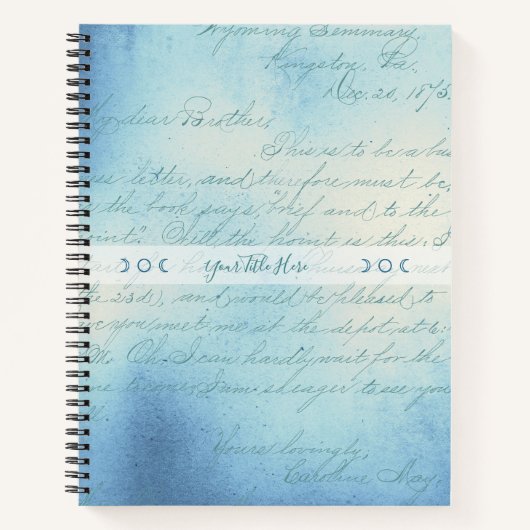 Wyoming Seminary,
Kingston, Pa.
Dec. 20, 1875.
My dear Brother,
This is to be a bus
ness letter, and therefore must be,
as the book says, "brief and to the
point". Well the point is this: I
Your Title Here
the 23d), and would be pleased to
have you meet me at the depot, at 6:
M. Oh I can hardly wait for the
time I am so eager to see you
all.
Yours lovingly,
Caroline May.